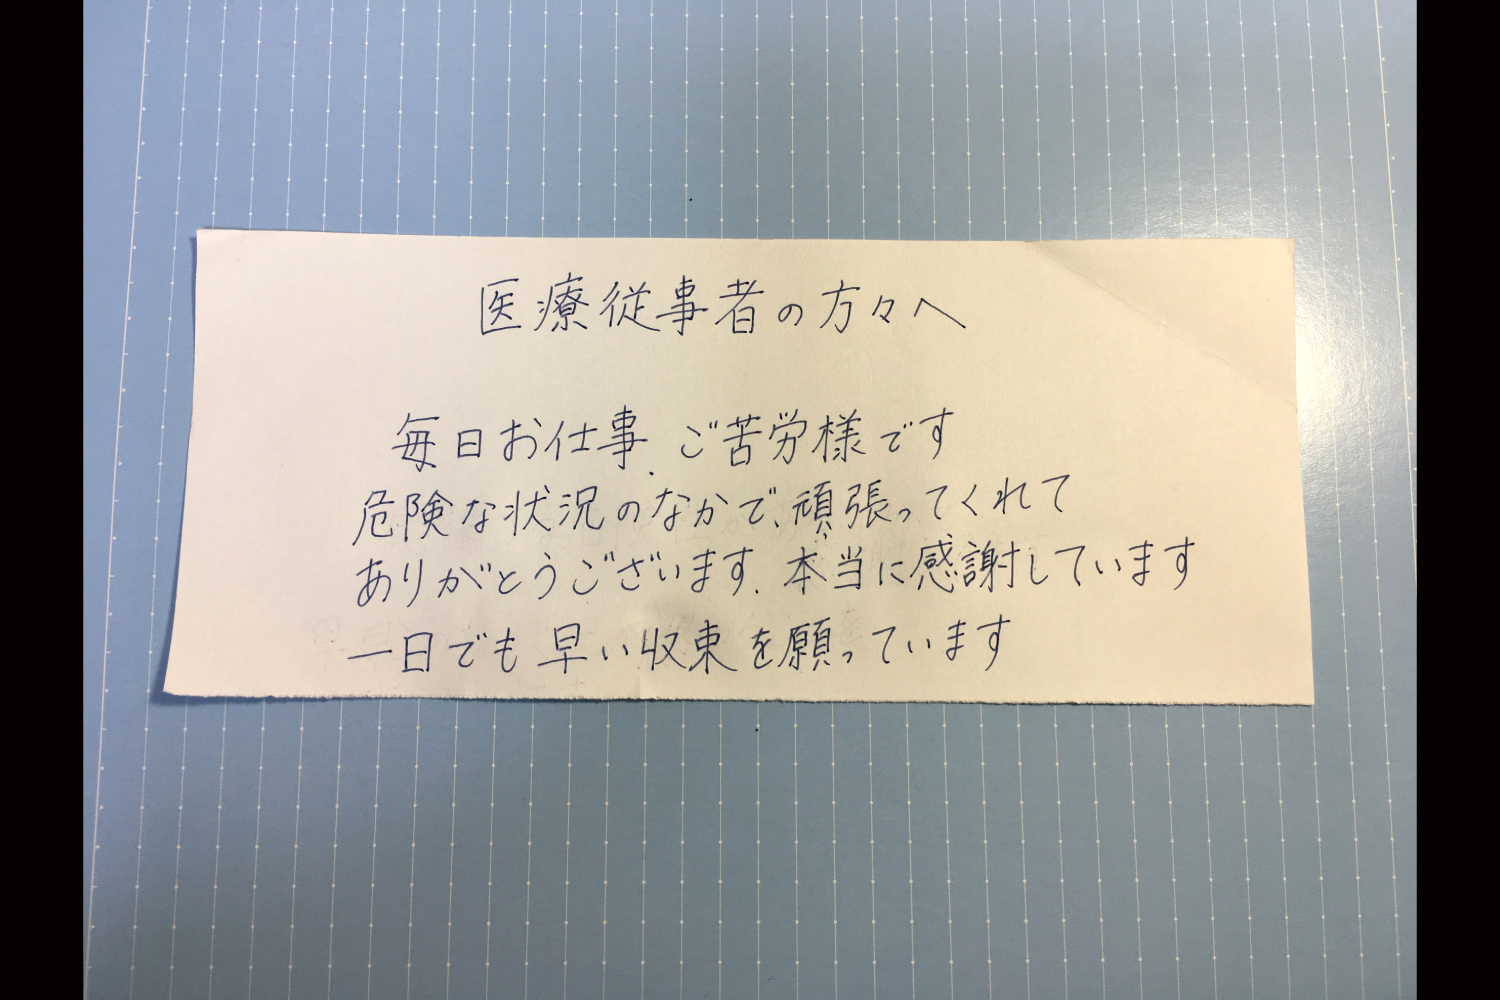 医療従事者の方々へ
毎日お仕事、ご苦労様です
危険な状況のなかで、頑張ってくれて
ありがとうございます、本当に感謝しています
一日でも早い収束を願っています